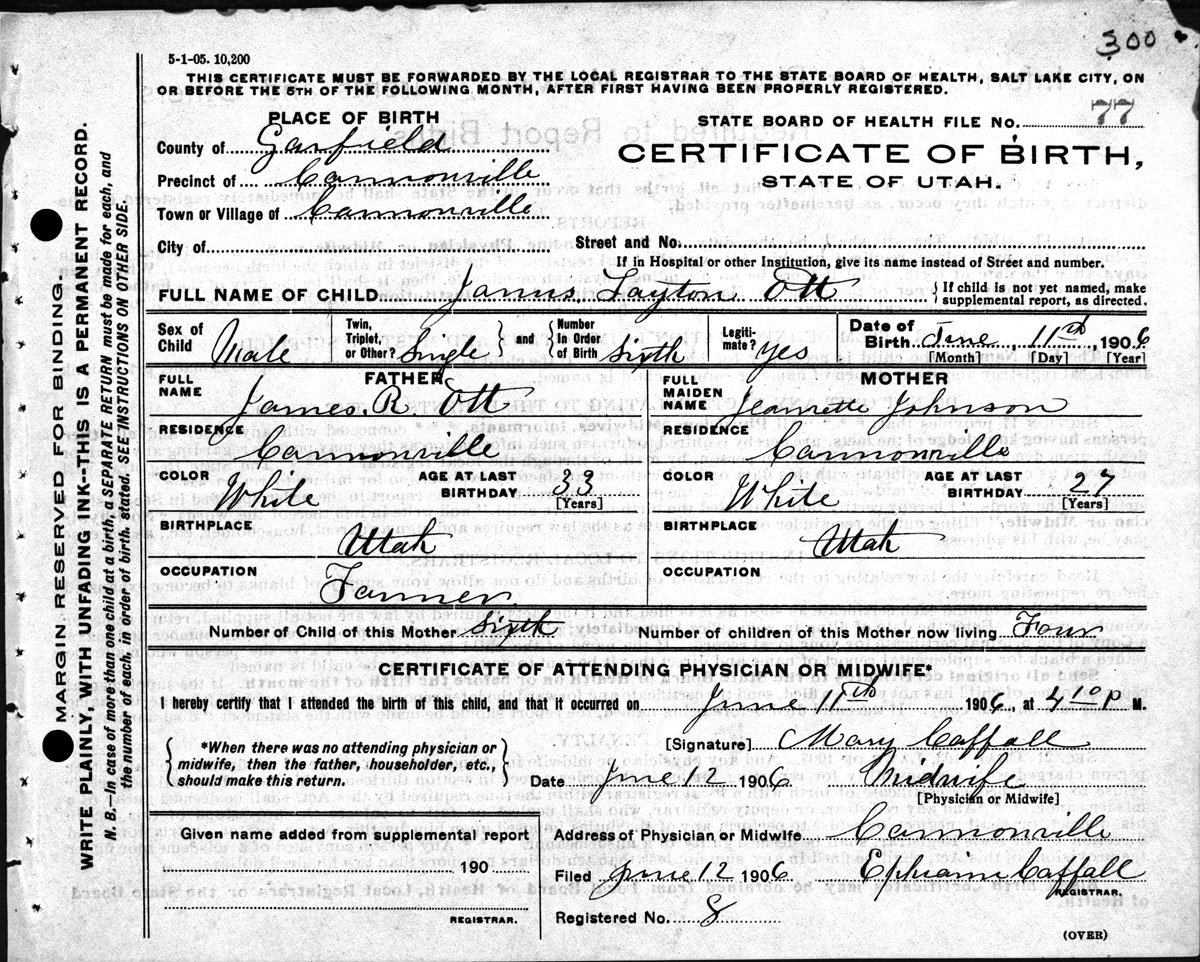 300
5-1-05. 10,200
THIS CERTIFICATE MUST BE FORWARDED BY THE LOCAL REGISTRAR TO THE STATE BOARD OF HEALTH, SALT LAKE CITY, ON
OR BEFORE THE 5TH OF THE FOLLOWING MONTH, AFTER FIRST HAVING BEEN PROPERLY REGISTERED.
PLACE OF BIRTH
STATE BOARD OF HEALTH FILE NO. 77
County of Garfield
CERTIFICATE OF BIRTH,
Precinct of Cannonville
STATE OF UTAH.
Town or Village of Cannonville
City of
Street and No.
If in Hospital or other Institution, give its name instead of Street and number.
FULL NAME OF CHILD James Layton Ott
If child is not yet named, make
supplemental report, as directed.
Sex of Child Male
Twin, Triplet, or Other? Single and Number In Order of Birth Sixth
Legiti- mate? yes
Date of Birth June, 11th, 1906
[Month] [Day] [Year]
FATHER
FULL NAME James. R Ott
RESIDENCE Cannonville
COLOR White AGE AT LAST BIRTHDAY 33
[Years]
BIRTHPLACE Utah
OCCUPATION Farmer
MOTHER
FULL MAIDEN NAME Jeanette Johnson
RESIDENCE Cannonville
COLOR White AGE AT LAST BIRTHDAY 27
[Years]
BIRTHPLACE Utah
OCCUPATION
Number of Child of this Mother Sixth Number of children of this Mother now living Four
CERTIFICATE OF ATTENDING PHYSICIAN OR MIDWIFE*
I hereby certify that I attended the birth of this child, and that it occurred on June 11th 1906, at 4 10 P M.
*When there was no attending physician or
midwife, then the father, householder, etc.,
should make this return.
[Signature] Mary Caffall
Date June 12 1906 Midwife
[Physician or Midwife]
Given name added from supplemental report
190
REGISTRAR.
Address of Physician or Midwife Cannonville
Filed June 12 1906 Ephraim Caffall
REGISTRAR.
Registered No. 8
(OVER)
MARGIN RESERVED FOR BINDING.
WRITE PLAINLY, WITH UNFADING INK--THIS IS A PERMANENT RECORD.
N. B.—In case of more than one child at a birth, a SEPARATE RETURN must be made for each, and
the number of each, in order of birth, stated. SEE INSTRUCTIONS ON OTHER SIDE.